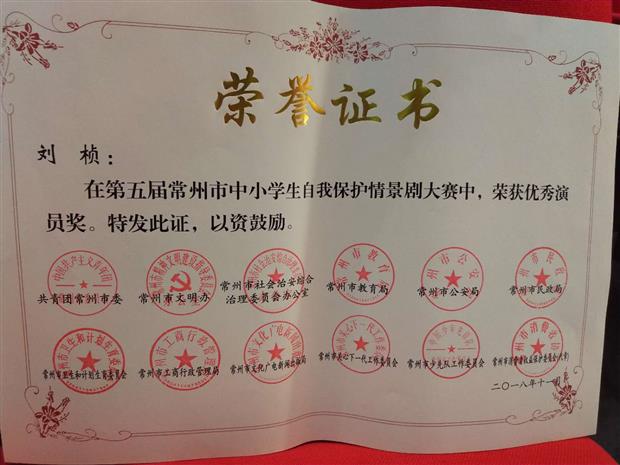 荣誉证书
刘桢：
在第五届常州市中小学生自我保护情景剧大赛中，荣获优秀演
员奖。特发此证，以资鼓励。
共青团常州市委 常州市文明办 常州市社会治安综合治理委员会办公室 常州市教育局 常州市公安局 常州市民政局
常州市卫生和计划生育委员会 常州市工商行政管理局 常州市文化广电新闻出版局 常州市关心下一代工作委员会 常州市少先队工作委员会
二〇一八年十一月